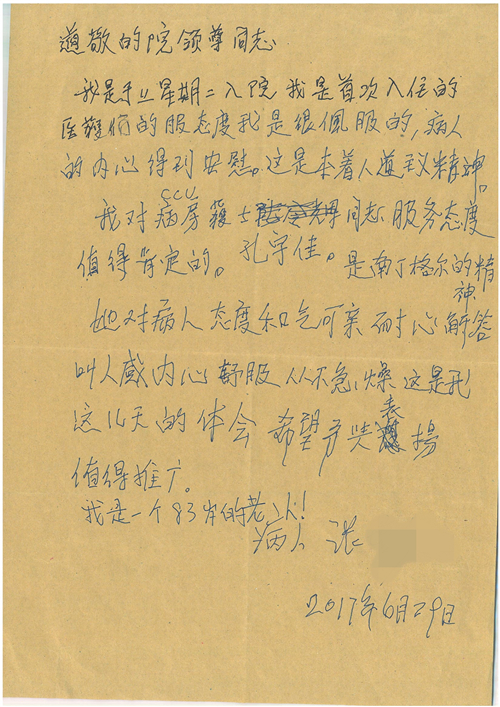 尊敬的院领导同志
我是于上星期二入院 我是首次入住的
医护们的服态度我是很佩服的,病人
的内心得到安慰。这是本着人道主义精神。
我对CCU病房护士 同志服务态度
值得肯定的。孔宇佳。是南丁格尔的精神
她对病人态度和气可亲 耐心解答
叫人感内心舒服 从不急、燥 这是我
这几天的体会 希望予以表扬
值得推广。
我是一个83岁的老人!
病人 张
2017年6月29日